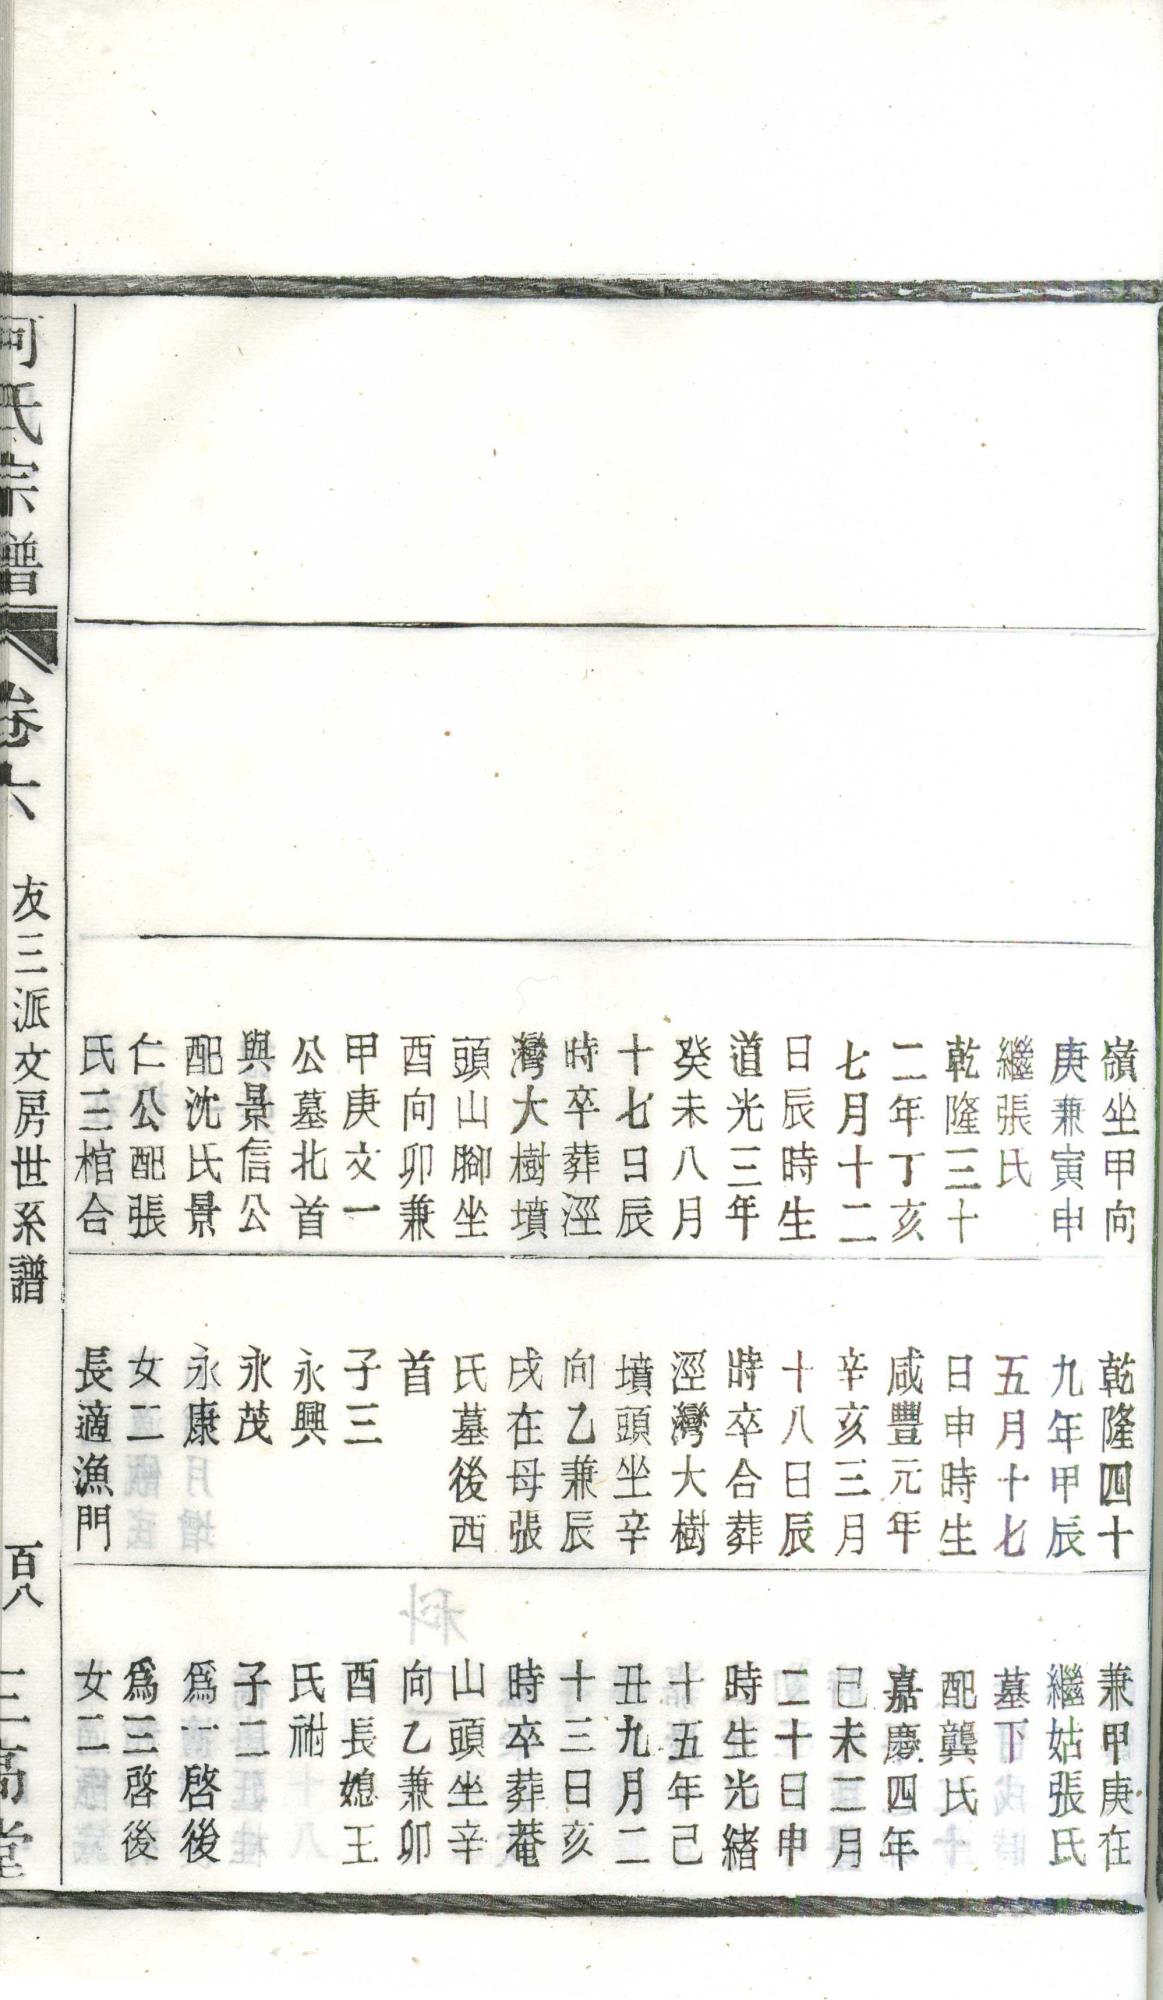 嶺坐甲向
庚兼寅申
繼張氏
乾隆三十
二年丁亥
七月十二
日辰時生
道光三年
癸未八月
十七日辰
時卒葬涇
灣大樹墳
頭山腳坐
酉向卯兼
甲庚文一
公墓北首
與景信公
配沈氏景
仁公配張
氏三棺合
乾隆四十
九年甲辰
五月十七
日申時生
咸豐元年
辛亥三月
十八日辰
時卒合葬
涇灣大樹
墳頭坐辛
向乙兼辰
戌在母張
氏墓後西
首
子三
永興
永茂
永康
女二
長適漁門
兼甲庚在
繼姑張氏
墓下
配龔氏
嘉慶四年
己未二月
二十日申
時生光緒
十五年己
丑九月二
十三日亥
時卒葬菴
山頭坐辛
向乙兼卯
酉長媳王
氏祔
子二
爲一啓後
爲三啓後
女二
何氏宗譜
卷六
友三派文房世系譜
百八
三高堂